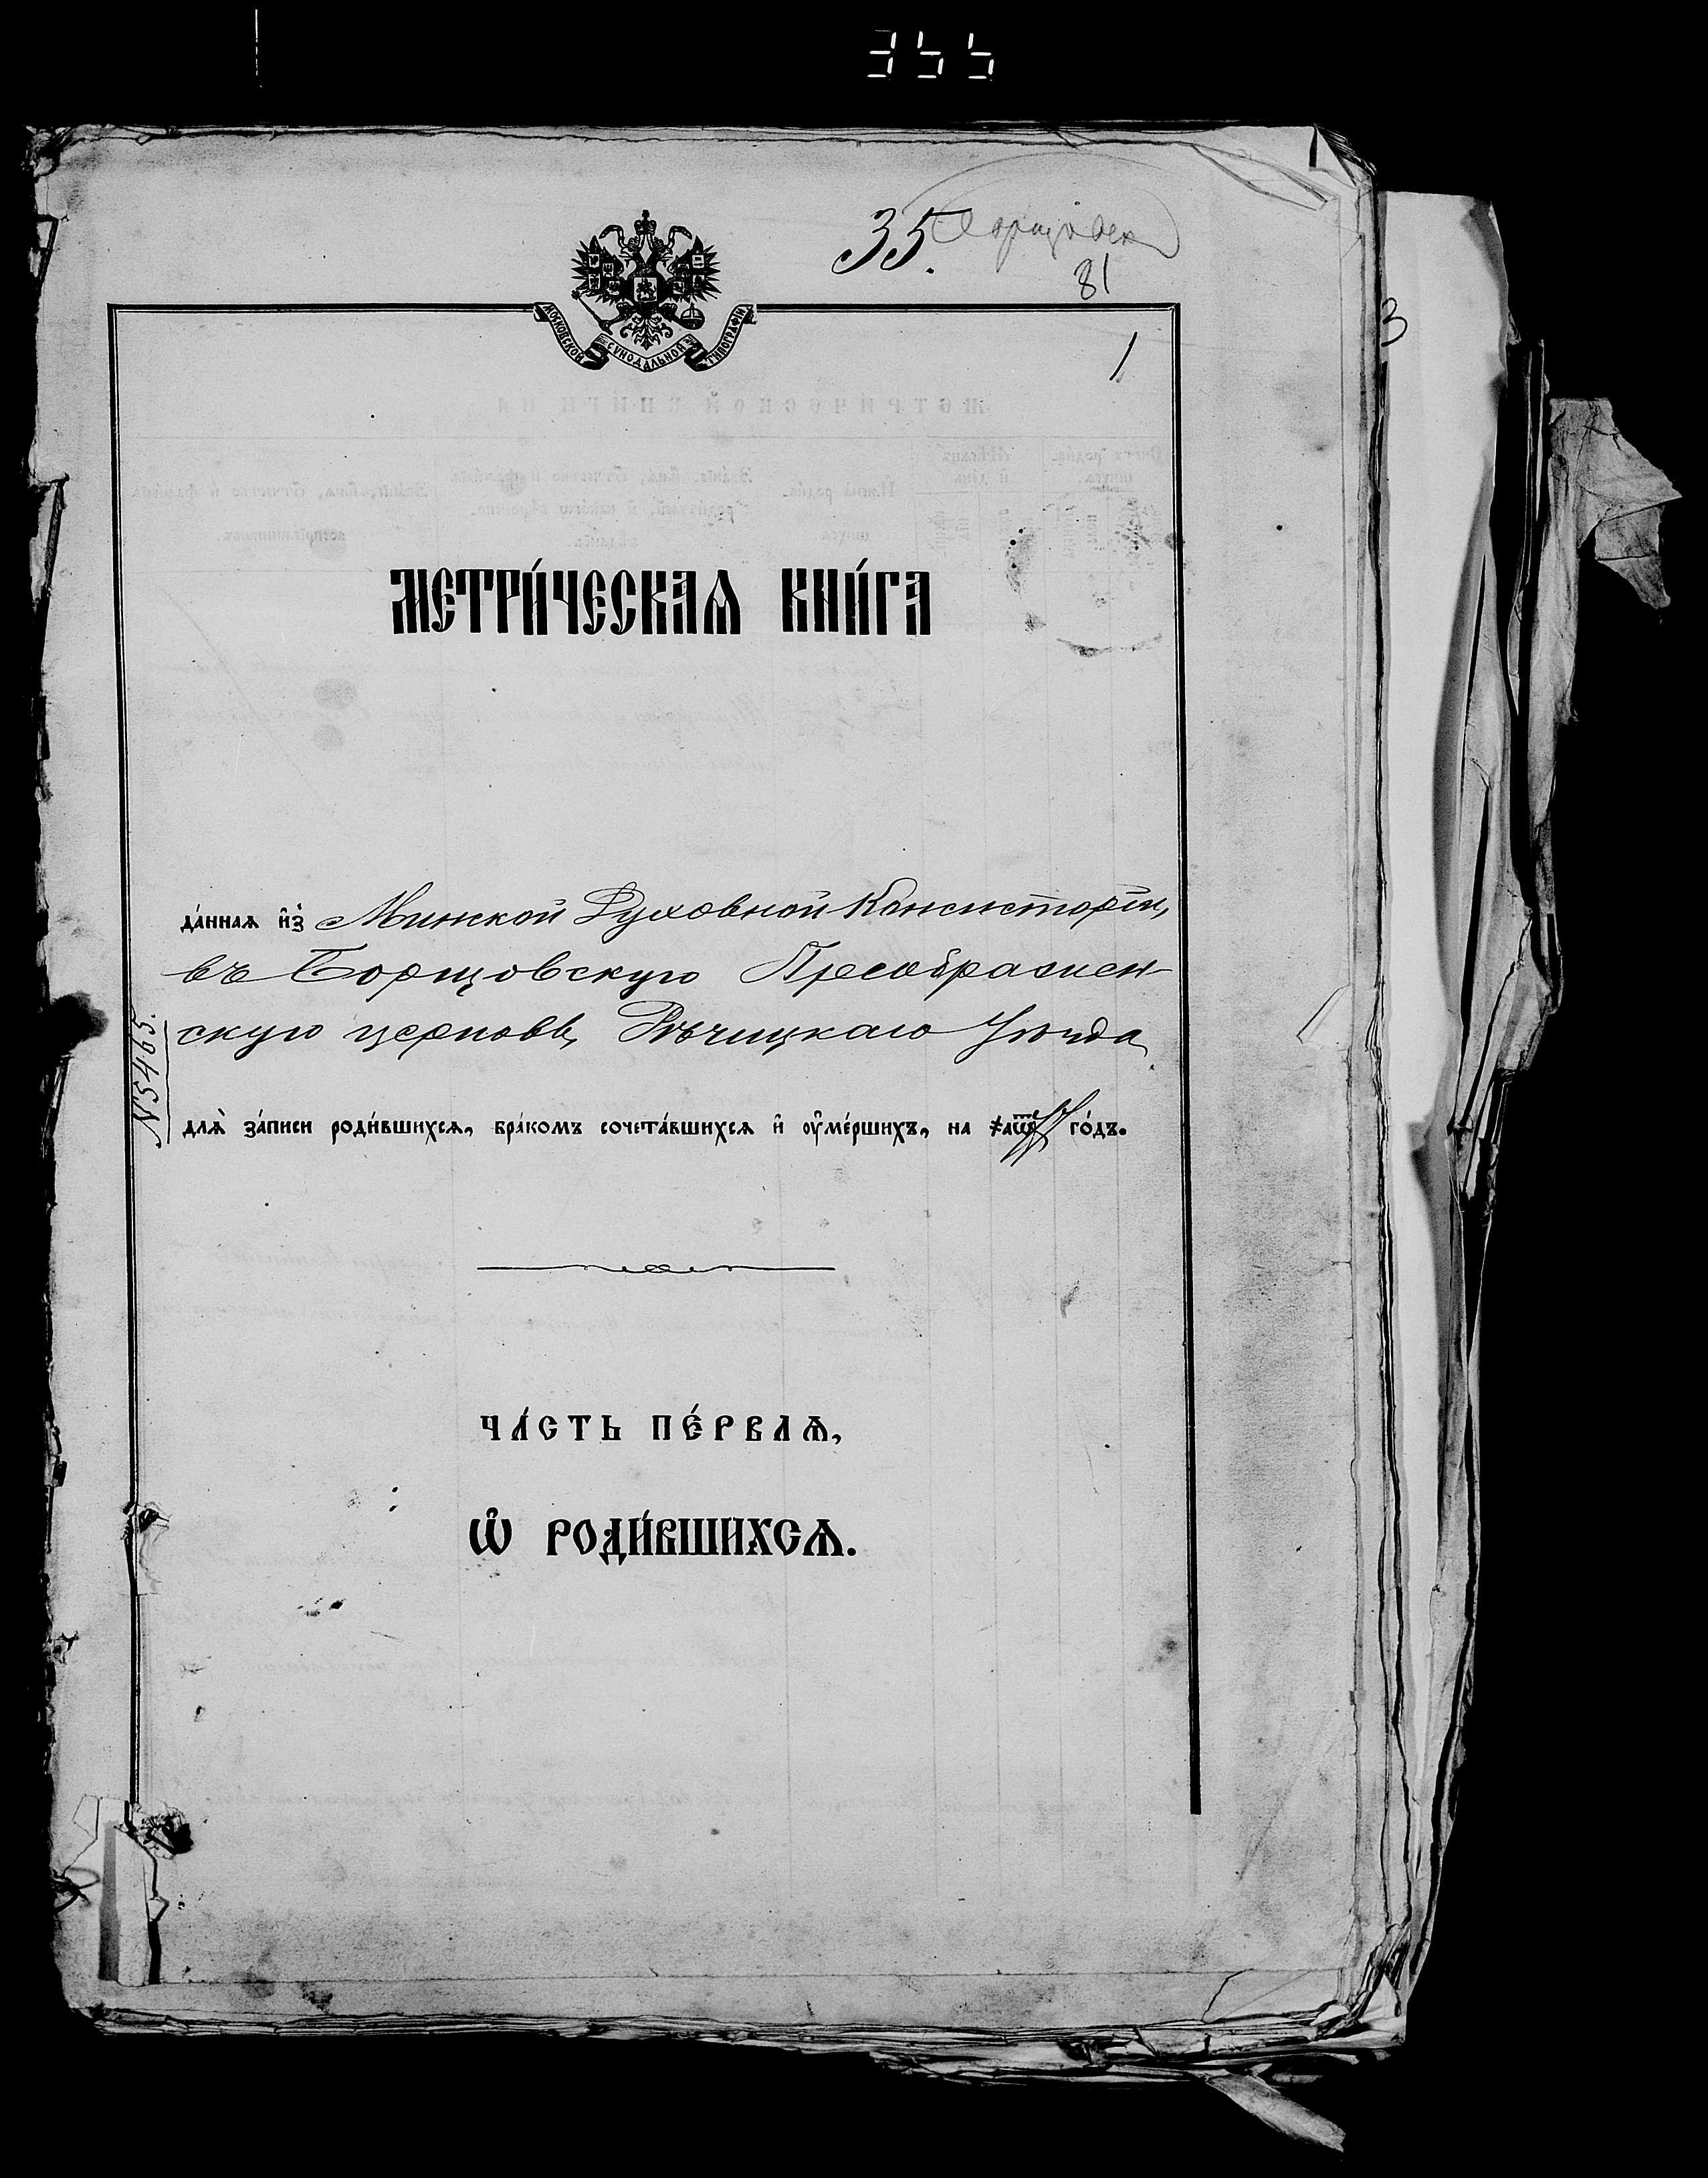 355
35.
81
МОСКОВСКОЙ СУНОДАЛЬНОЙ ТИПОГРАФІИ
1
3
МЕТРИ́ЧЕСКАѦ КНИ́ГА
да́ннаѧ и҆з̾ Минской Духовной Консисторіи,
въ Борщовскую Преображен-
скую церковь, Рѣчицкаго Уѣзда
№5465.
длѧ̀ за́писи роди́вшихсѧ, бра́комъ сочета́вшихсѧ и҆ ᲂу҆ме́ршихъ, на го́дъ.
ЧА́СТЬ ПЕ́РВАѦ,
Ѡ҆ РОДИ́ВШИХСѦ.